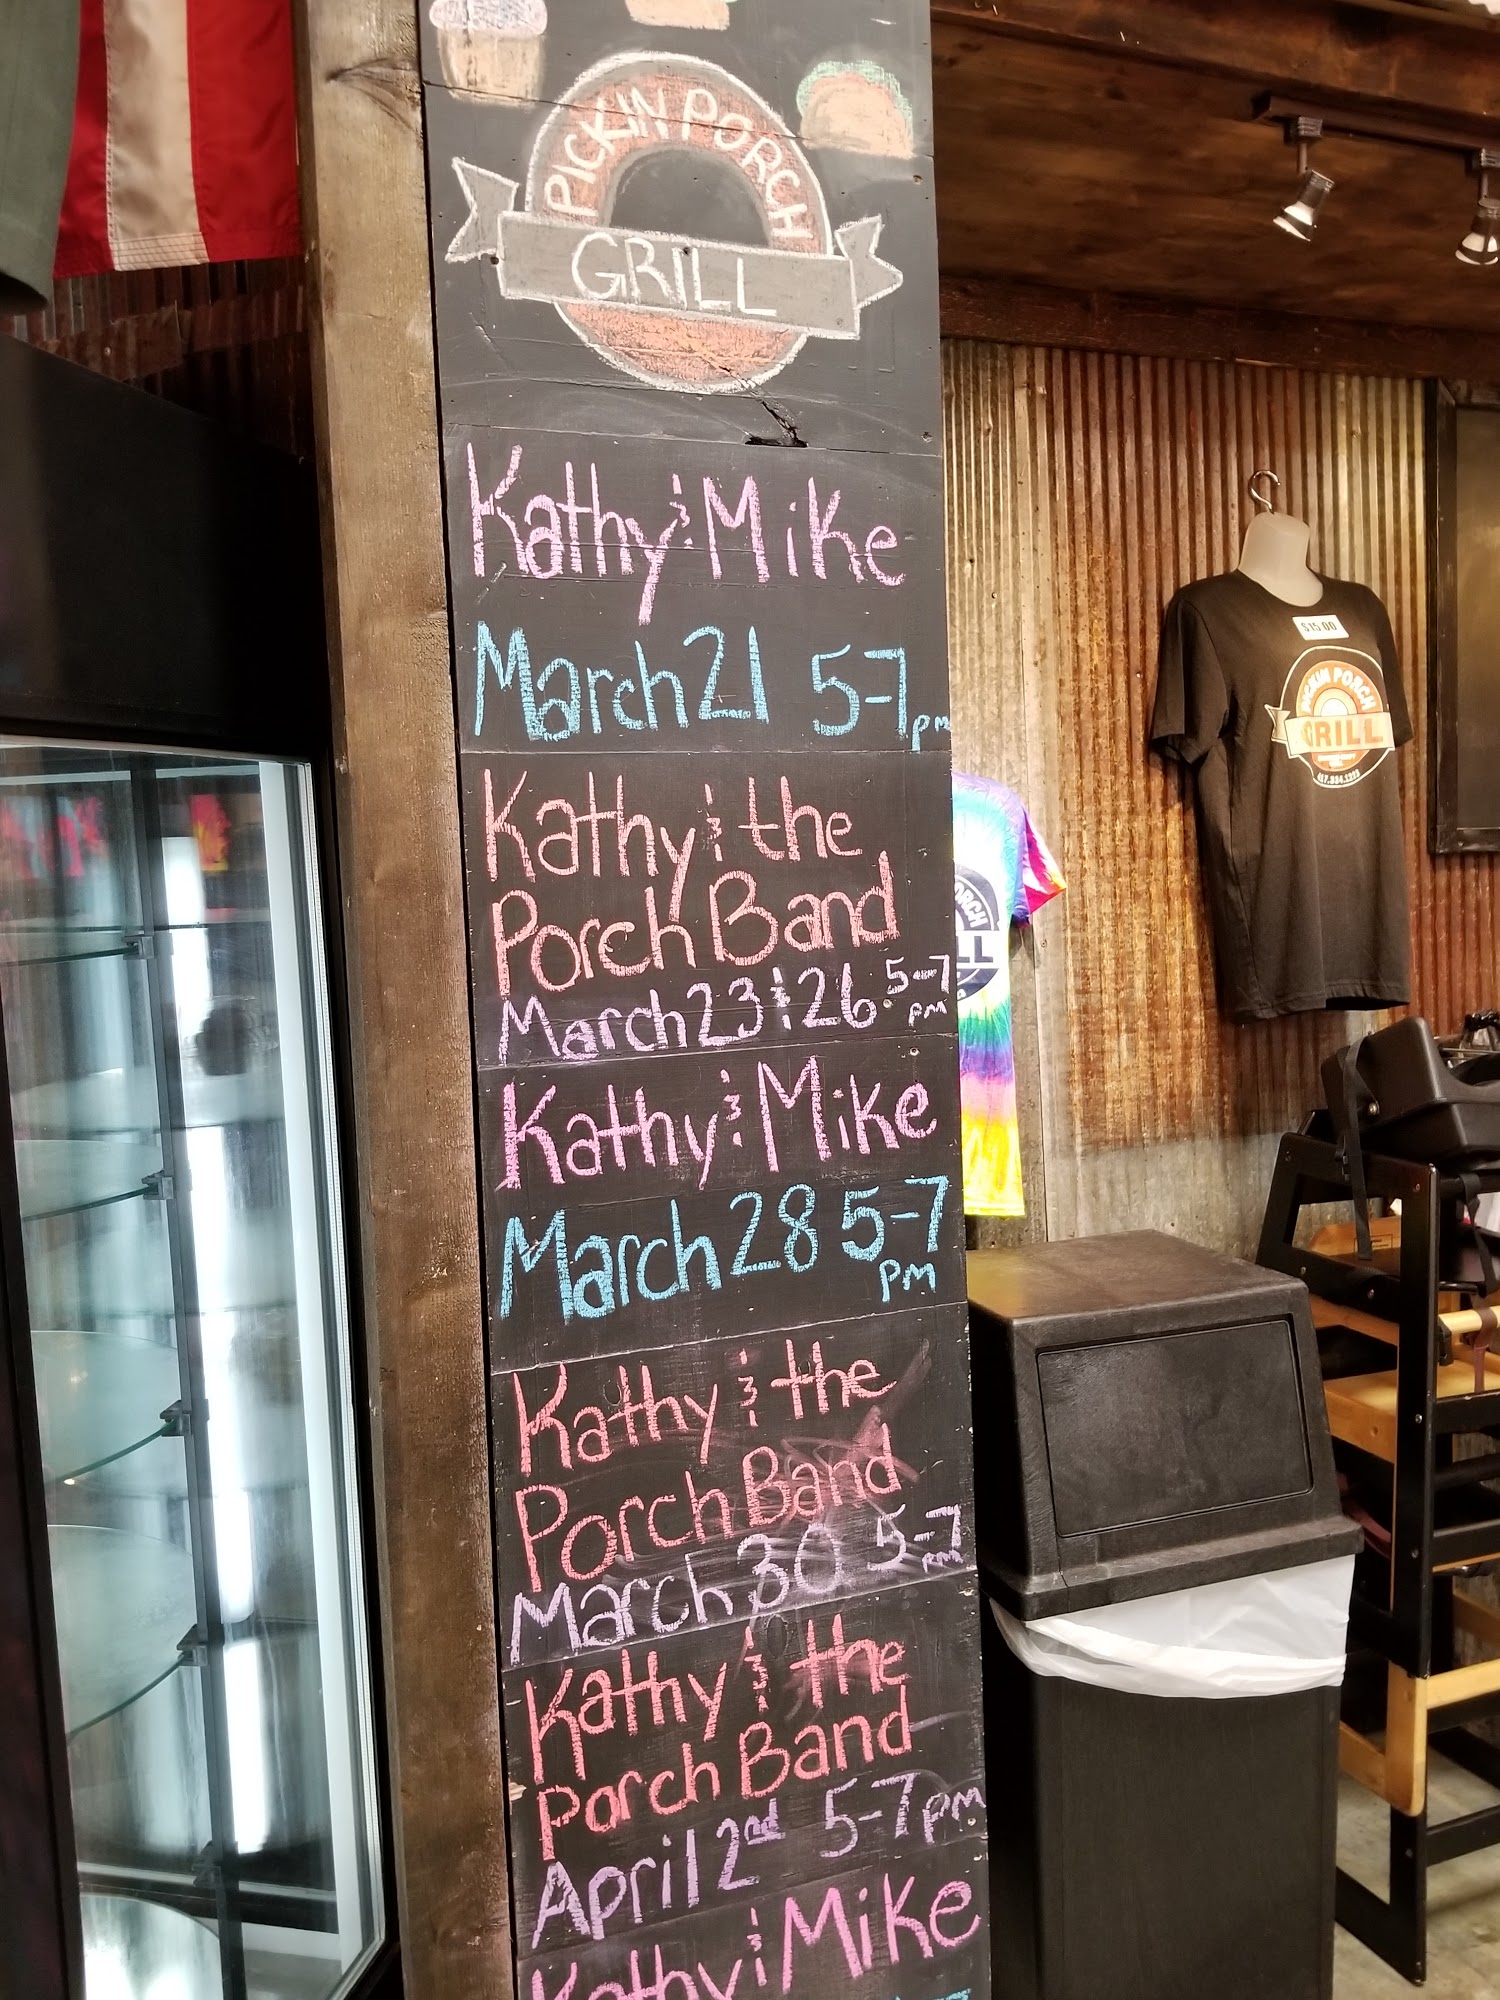 PICKIN PORCH
GRILL
Kathy & Mike
March 21 5-7pm
Kathy & the
Porch Band
March 23 & 26 5-7
pm
Kathy & Mike
March 28 5-7
pm
Kathy & the
Porch Band
March 30 5-7
pm
Kathy & the
Porch Band
April 2nd 5-7pm
Kathy & Mike
$15.00
PICKIN PORCH
GRILL
417.334.1223
PORCH
LL